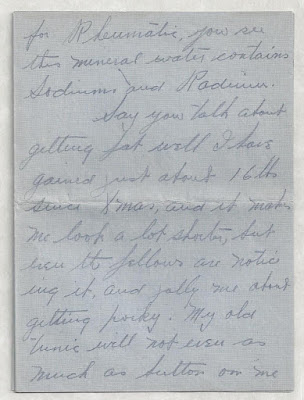 for Rheumatic, you see
this mineral water contains
Sodinons and Radium.
Say you talk about
getting fat well I have
gained just about 16 lbs
since X'mas, and it makes
me look a lot shorter, but
even the fellows are notic
ing it, and jolly me about
getting porky. My old
tunic will not even as
much as button on me